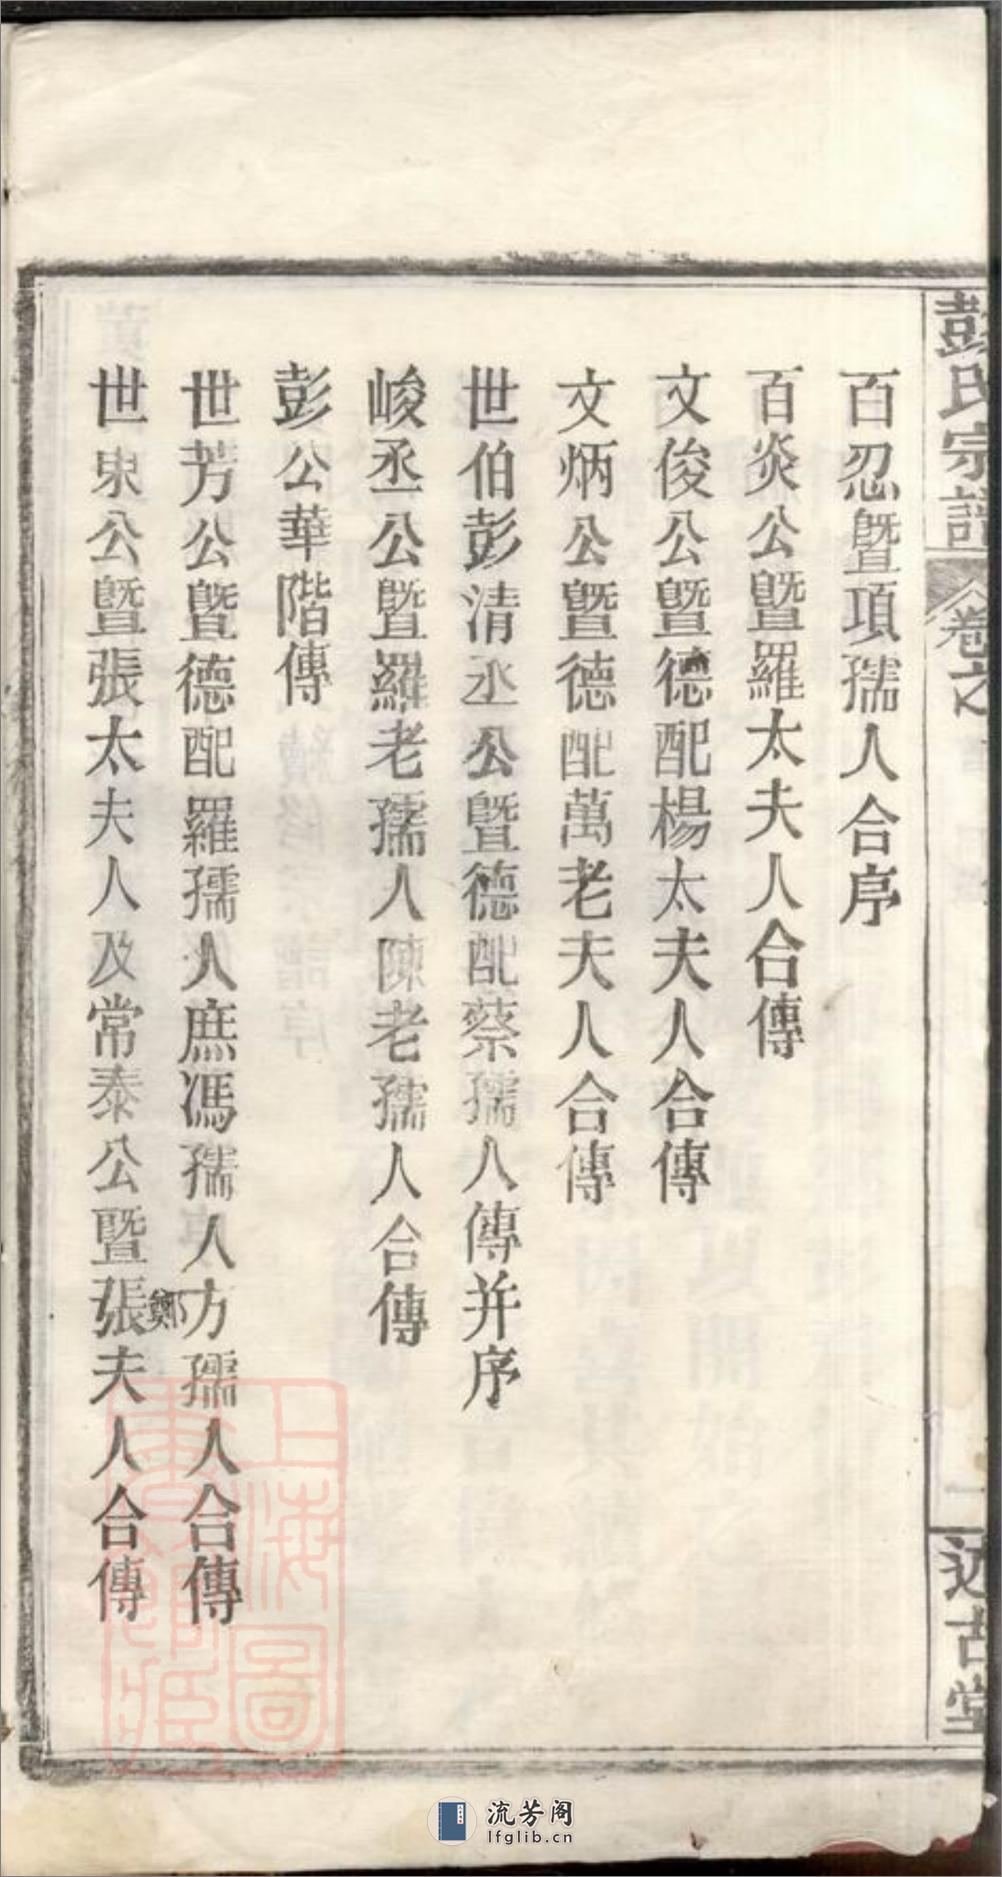 彭氏宗譜
卷之
述古堂
百忍暨項孺人合序
百炎公暨羅太夫人合傳
文俊公暨德配楊太夫人合傳
文炳公暨德配萬老夫人合傳
世伯彭清丞公暨德配蔡孺人傳并序
峻丞公暨羅老孺人陳老孺人合傳
彭公華階傳
世芳公暨德配羅孺人庶馮孺人方孺人合傳
鄭
世東公暨張太夫人及常泰公暨張夫人合傳
上海圖書館藏
流芳阁
lfglib.cn